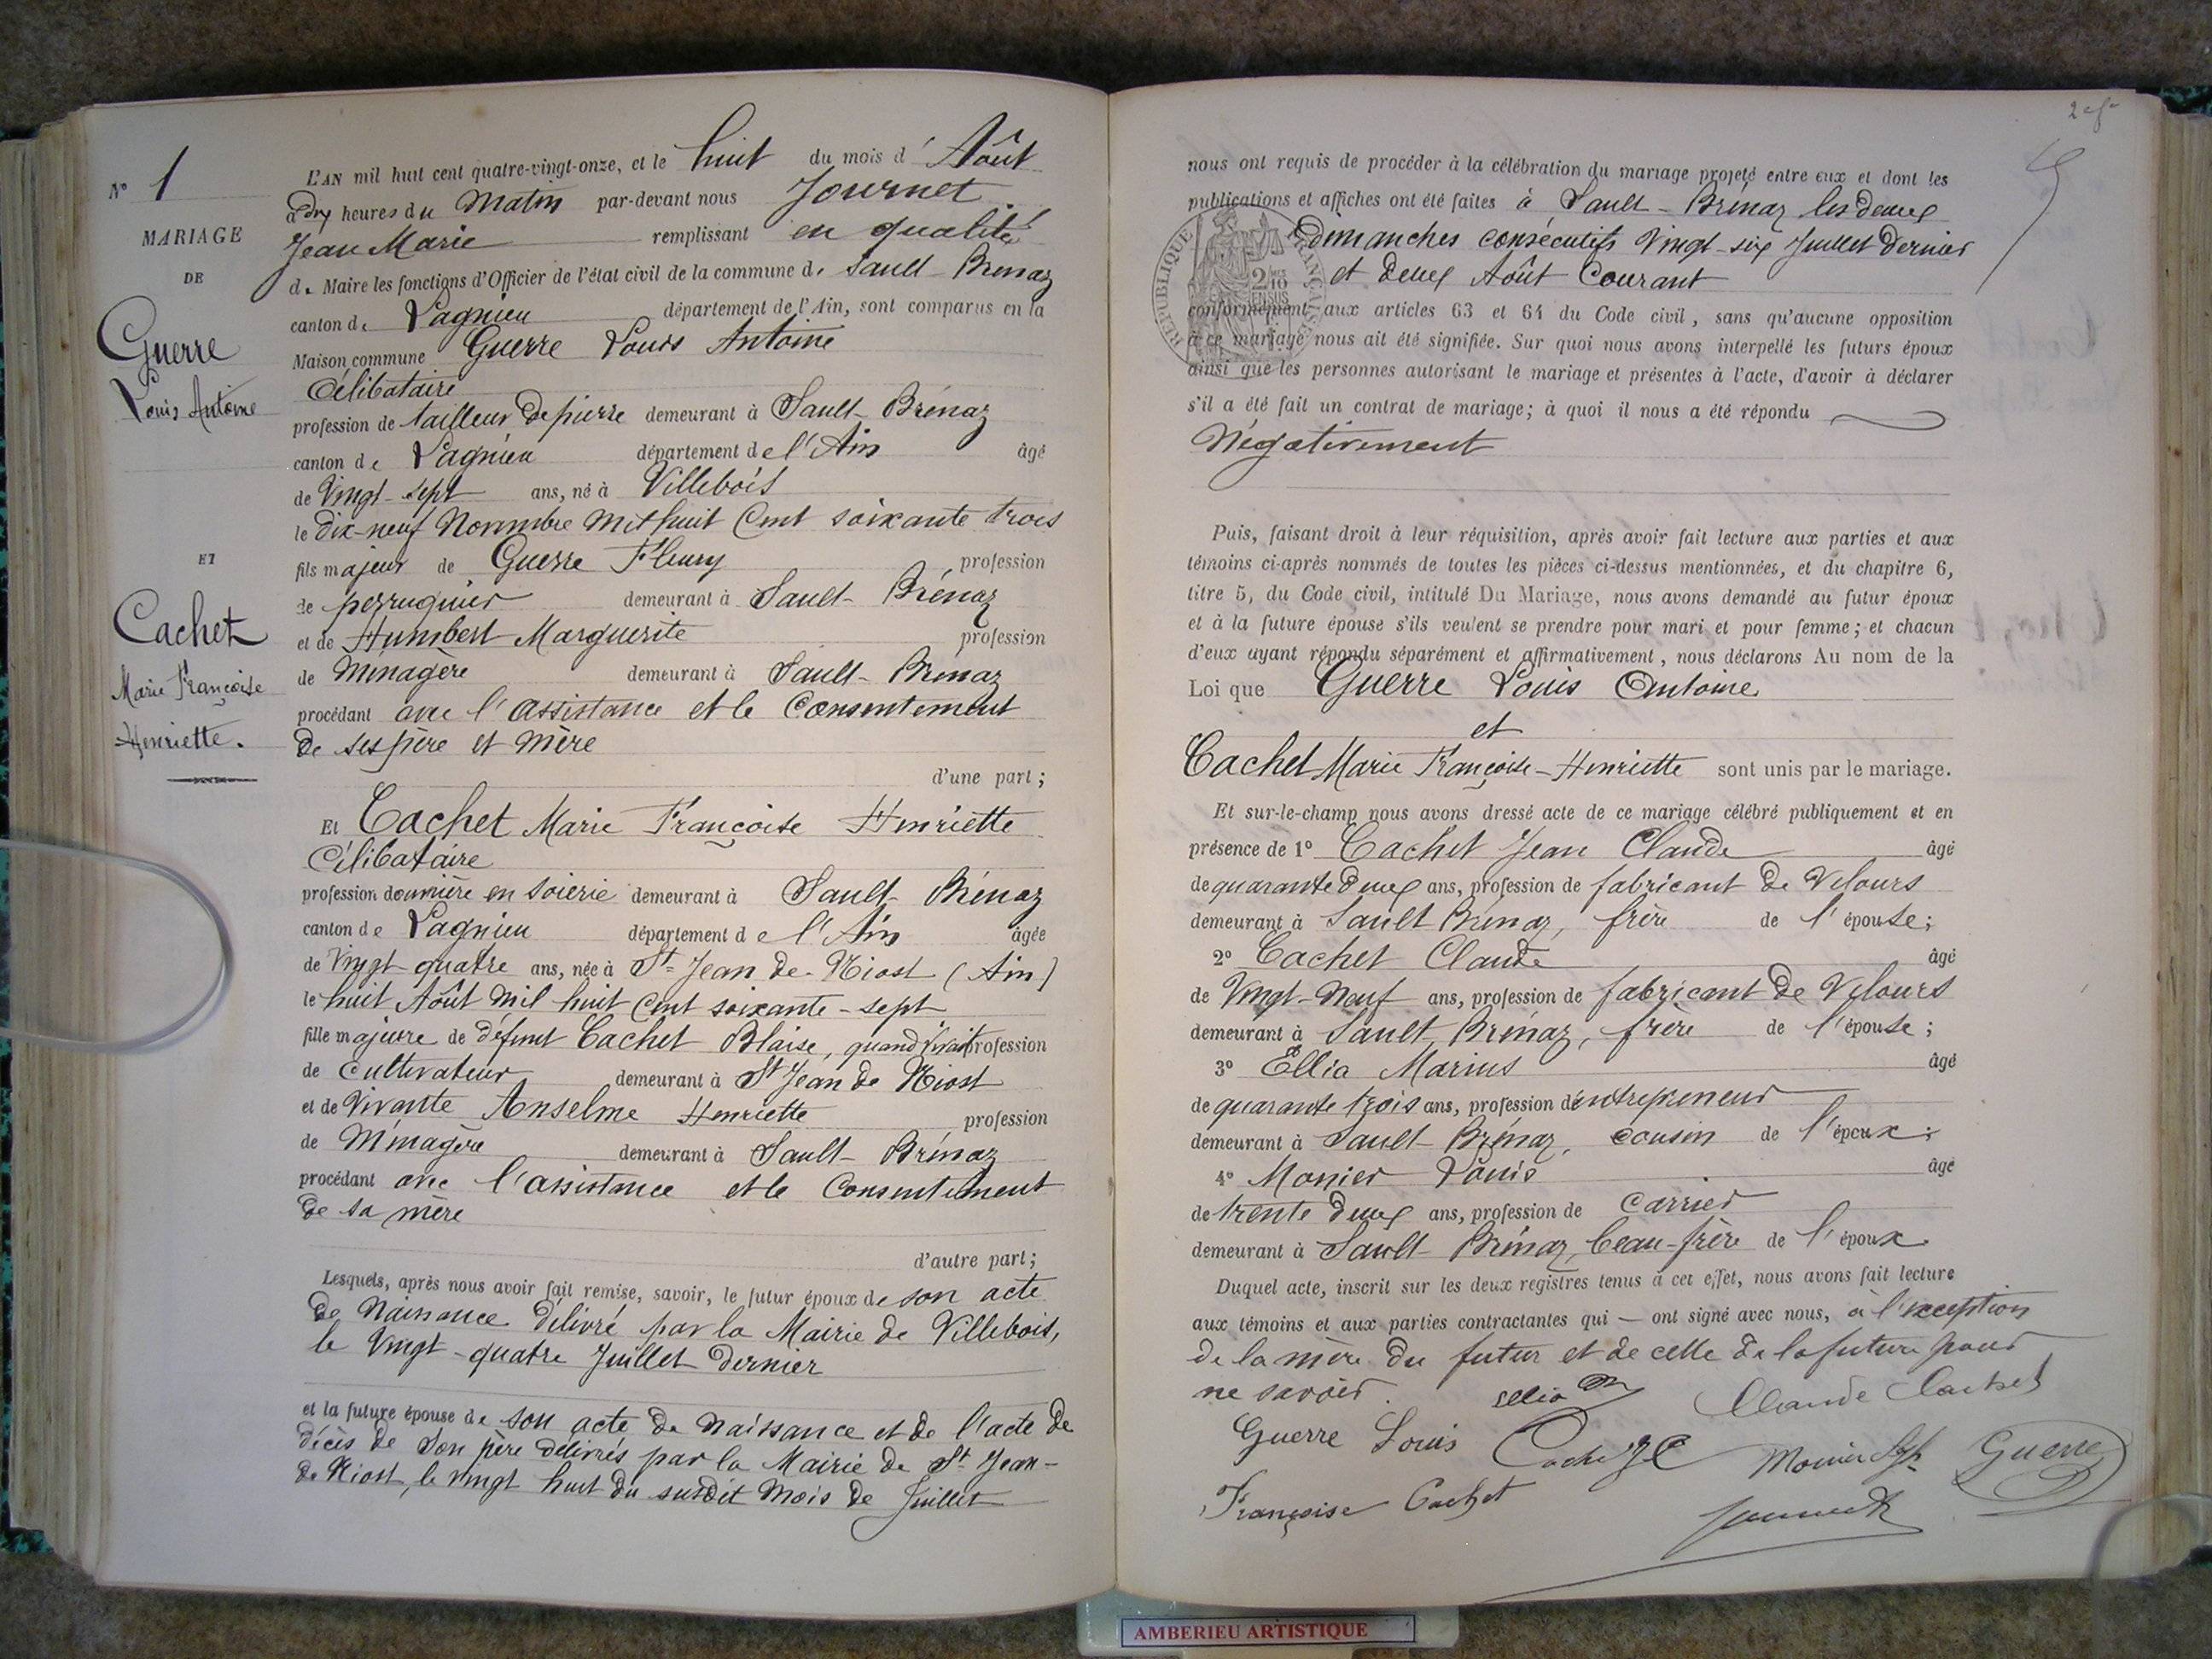 N° 1
MARIAGE
DE
Guerre
Louis Antoine
ET
Cachet
Marie Françoise
Henriette.
L'AN mil huit cent quatre-vingt-onze, et le huit du mois d'Août
à dix heures du Matin par-devant nous Journet
Jean Marie remplissant en qualité
de Maire les fonctions d'Officier de l'état civil de la commune de Sault-Brénaz
canton de Lagnieu département de l'Ain, sont comparus en la
Maison commune Guerre Louis Antoine
Célibataire
profession de tailleur de pierre demeurant à Sault-Brénaz
canton de Lagnieu département de l'Ain âgé
de Vingt-sept ans, né à Villebois
le dix-neuf Novembre Mil huit Cent soixante trois
fils majeur de Guerre Fleury profession
de perruquier demeurant à Sault-Brénaz
et de Humbert Marguerite profession
de Ménagère demeurant à Sault-Brénaz
procédant avec l'assistance et le Consentement
de ses père et Mère
d'une part;
Et Cachet Marie Françoise Henriette
Célibataire
profession d'ouvrière en soierie demeurant à Sault-Brénaz
canton de Lagnieu département de l'Ain âgée
de Vingt-quatre ans, née à St-Jean de-Niost (Ain)
le huit Août Mil huit Cent soixante-sept
fille majeure de défunt Cachet Blaise, quand vivait profession
de cultivateur demeurant à St Jean de Niost
et de Vivante Anselme Henriette profession
de Ménagère demeurant à Sault-Brénaz
procédant avec l'assistance et le Consentement
de sa mère
d'autre part;
Lesquels, après nous avoir fait remise, savoir, le futur époux de son acte
de Naissance délivré par la Mairie de Villebois,
le Vingt-quatre Juillet dernier
et la future épouse de son acte de Naissance et de l'acte de
décès de son père délivrés par la Mairie de St Jean-
de Niost, le vingt huit du susdit Mois de Juillet
nous ont requis de procéder à la célébration du mariage projeté entre eux et dont les
publications et affiches ont été faites à Sault-Brénaz les deux
dimanches consécutifs Vingt-six Juillet dernier
et deux Août Courant
REPUBLIQUE FRANÇAISE
conformément aux articles 63 et 64 du Code civil, sans qu'aucune opposition
à ce mariage nous ait été signifiée. Sur quoi nous avons interpellé les futurs époux
ainsi que les personnes autorisant le mariage et présentes à l'acte, d'avoir à déclarer
s'il a été fait un contrat de mariage; à quoi il nous a été répondu
Négativement
Puis, faisant droit à leur réquisition, après avoir fait lecture aux parties et aux
témoins ci-après nommés de toutes les pièces ci-dessus mentionnées, et du chapitre 6,
titre 5, du Code civil, intitulé Du Mariage, nous avons demandé au futur époux
et à la future épouse s'ils veulent se prendre pour mari et pour femme; et chacun
d'eux ayant répondu séparément et affirmativement, nous déclarons Au nom de la
Loi que Guerre Louis Antoine
et
Cachet Marie Françoise-Henriette sont unis par le mariage.
Et sur-le-champ nous avons dressé acte de ce mariage célébré publiquement et en
présence de 1° Cachet Jean Claude âgé
de quarante deux ans, profession de fabricant de Velours
demeurant à Sault Brénaz, frère de l'épouse;
2° Cachet Claude âgé
de Vingt-Neuf ans, profession de fabricant de Velours
demeurant à Sault-Brénaz, frère de l'épouse;
3° Ellia Marius âgé
de quarante trois ans, profession d'entrepreneur
demeurant à Sault-Brénaz, cousin de l'époux;
4° Monier Louis âgé
de trente deux ans, profession de carrier
demeurant à Sault-Brénaz, beau-frère de l'époux
Duquel acte, inscrit sur les deux registres tenus à cet effet, nous avons fait lecture
aux témoins et aux parties contractantes qui — ont signé avec nous, à l'exception
de la mère du futur et de celle de la future pour
ne savoir.
Ellia M Claude Cachet
Guerre Louis Cachet J C Monier Guerre
Françoise Cachet Journet
AMBERIEU ARTISTIQUE